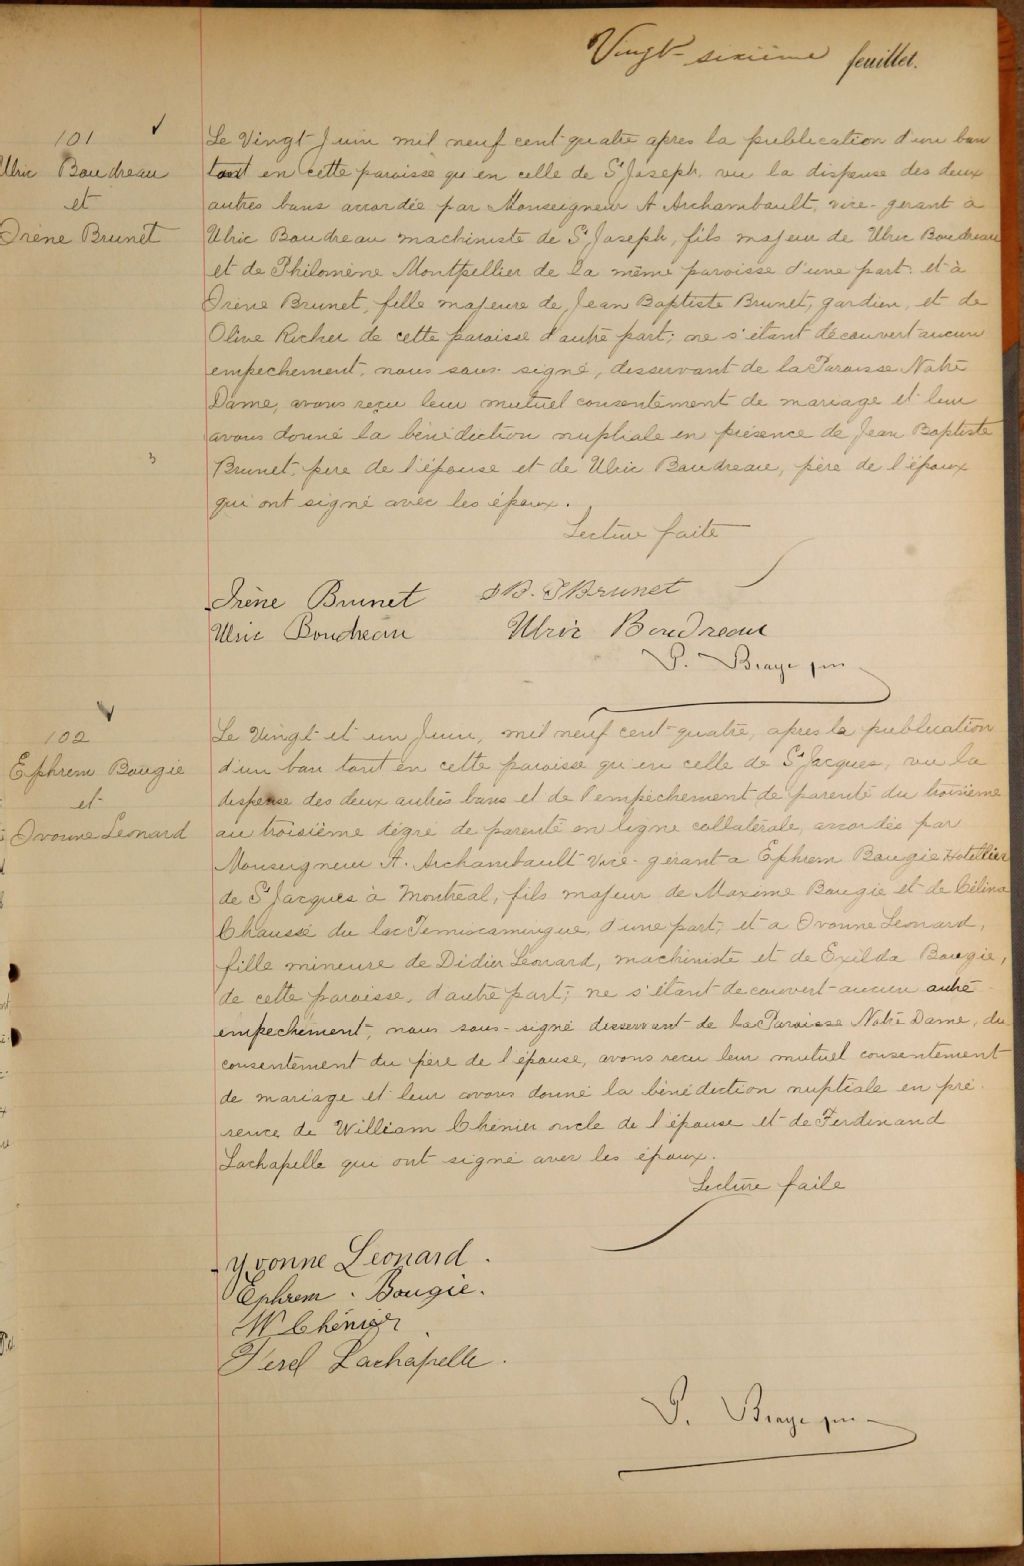 Vingt-sixième feuillet.
101
Ulric Boudreau
et
Irène Brunet
Le Vingt Juin mil neuf cent quatre après la publication d'un ban
tant en cette paroisse qu'en celle de St Joseph, vu la dispense des deux
autres bans accordée par Monseigneur A Archambault, vice-gérant à
Ulric Boudreau machiniste de St Joseph, fils majeur de Ulric Boudreau
et de Philomène Montpellier de la même paroisse d'une part, et à
Irène Brunet, fille majeure de Jean Baptiste Brunet, gardien, et de
Olive Richer de cette paroisse d'autre part; ne s'étant découvert aucun
empechement, nous sous-signé, desservant de la Paroisse Notre
Dame, avons reçu leur mutuel consentement de mariage et leur
avons donné la bénédiction nuptiale en présence de Jean Baptiste
Brunet, père de l'épouse et de Ulric Boudreau, père de l'époux
qui ont signé avec les époux.
Lecture faite
Irène Brunet
J B. Brunet
Ulric Boudreau
Ulric Boudreau
P. Braye ptre
102
Ephrem Bougie
et
Yvonne Leonard
Le Vingt et un Juin, mil neuf cent quatre, après la publication
d'un ban tant en cette paroisse qu'en celle de St Jacques, vu la
dispense des deux autres bans et de l'empêchement de parenté du troisième
au troisième dégré de parenté en ligne collatérale, accordée par
Monseigneur A. Archambault Vice-gérant a Ephrem Bougie Hotellier
de St Jacques à Montréal, fils majeur de Maxime Bougie et de Célina
Chaussé du lac Temiscamingue, d'une part; et a Yvonne Leonard,
fille mineure de Didier Léonard, machiniste et de Exilda Bougie,
de cette paroisse, d'autre part; ne s'étant découvert aucun autre
empechement, nous sous-signé desservant de la Paroisse Notre Dame, du
consentement du père de l'épouse, avons reçu leur mutuel consentement
de mariage et leur avons donné la bénédiction nuptiale en pré-
sence de William Chénier oncle de l'épouse et de Ferdinand
Lachapelle qui ont signé avec les époux.
Lecture faite
Yvonne Leonard.
Ephrem. Bougie.
W Chénier
Ferd Lachapelle.
P. Braye ptre